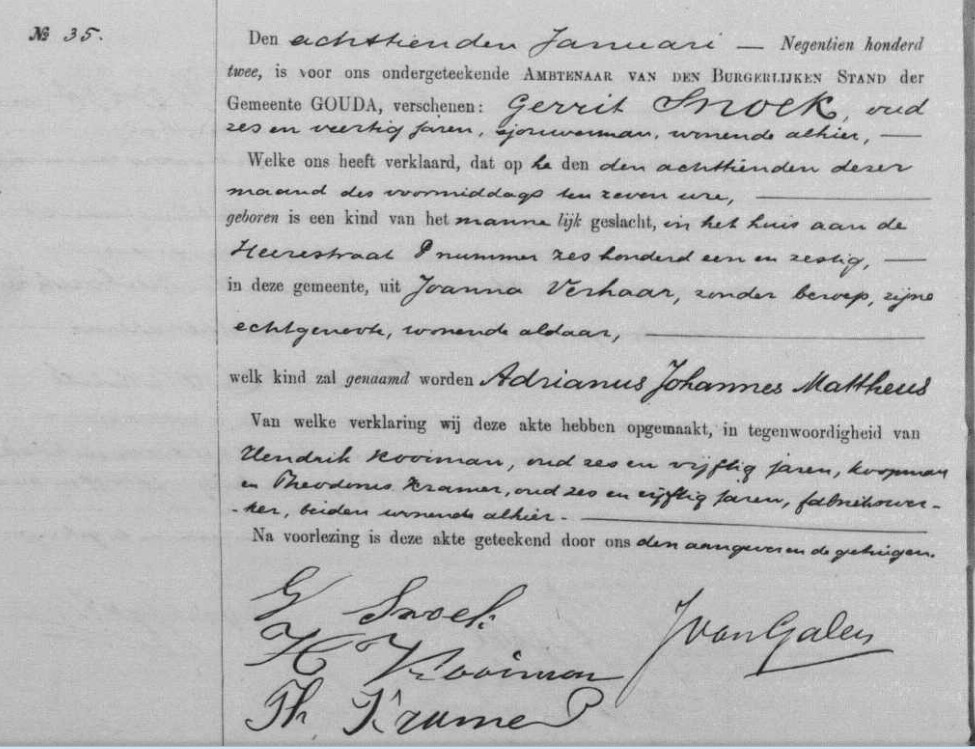 № 35.
Den achttienden Januari — Negentien honderd
twee, is voor ons ondergeteekende AMBTENAAR VAN DEN BURGERLIJKEN STAND der
Gemeente GOUDA, verschenen: Gerrit Snoek, oud
zes en veertig jaren, sjouwerman, wonende alhier, —
Welke ons heeft verklaard, dat op de den achttienden dezer
maand des voormiddags ten zeven ure, —
geboren is een kind van het mannelijk geslacht, in het huis aan de
Heerestraat P nummer zes honderd een en zestig, —
in deze gemeente, uit Joanna Verhaar, zonder beroep, zijne
echtgenoote, wonende aldaar, —
welk kind zal genaamd worden Adrianus Johannes Mattheus
Van welke verklaring wij deze akte hebben opgemaakt, in tegenwoordigheid van
Hendrik Kooiman, oud zes en vijftig jaren, koopman
en Theodorus Kramer, oud zes en vijftig jaren, fabriekswer-
-ker, beiden wonende alhier. —
Na voorlezing is deze akte geteekend door ons den aangever en de getuigen.
G Snoek
H Kooiman
JvanGalen
Th Kramer